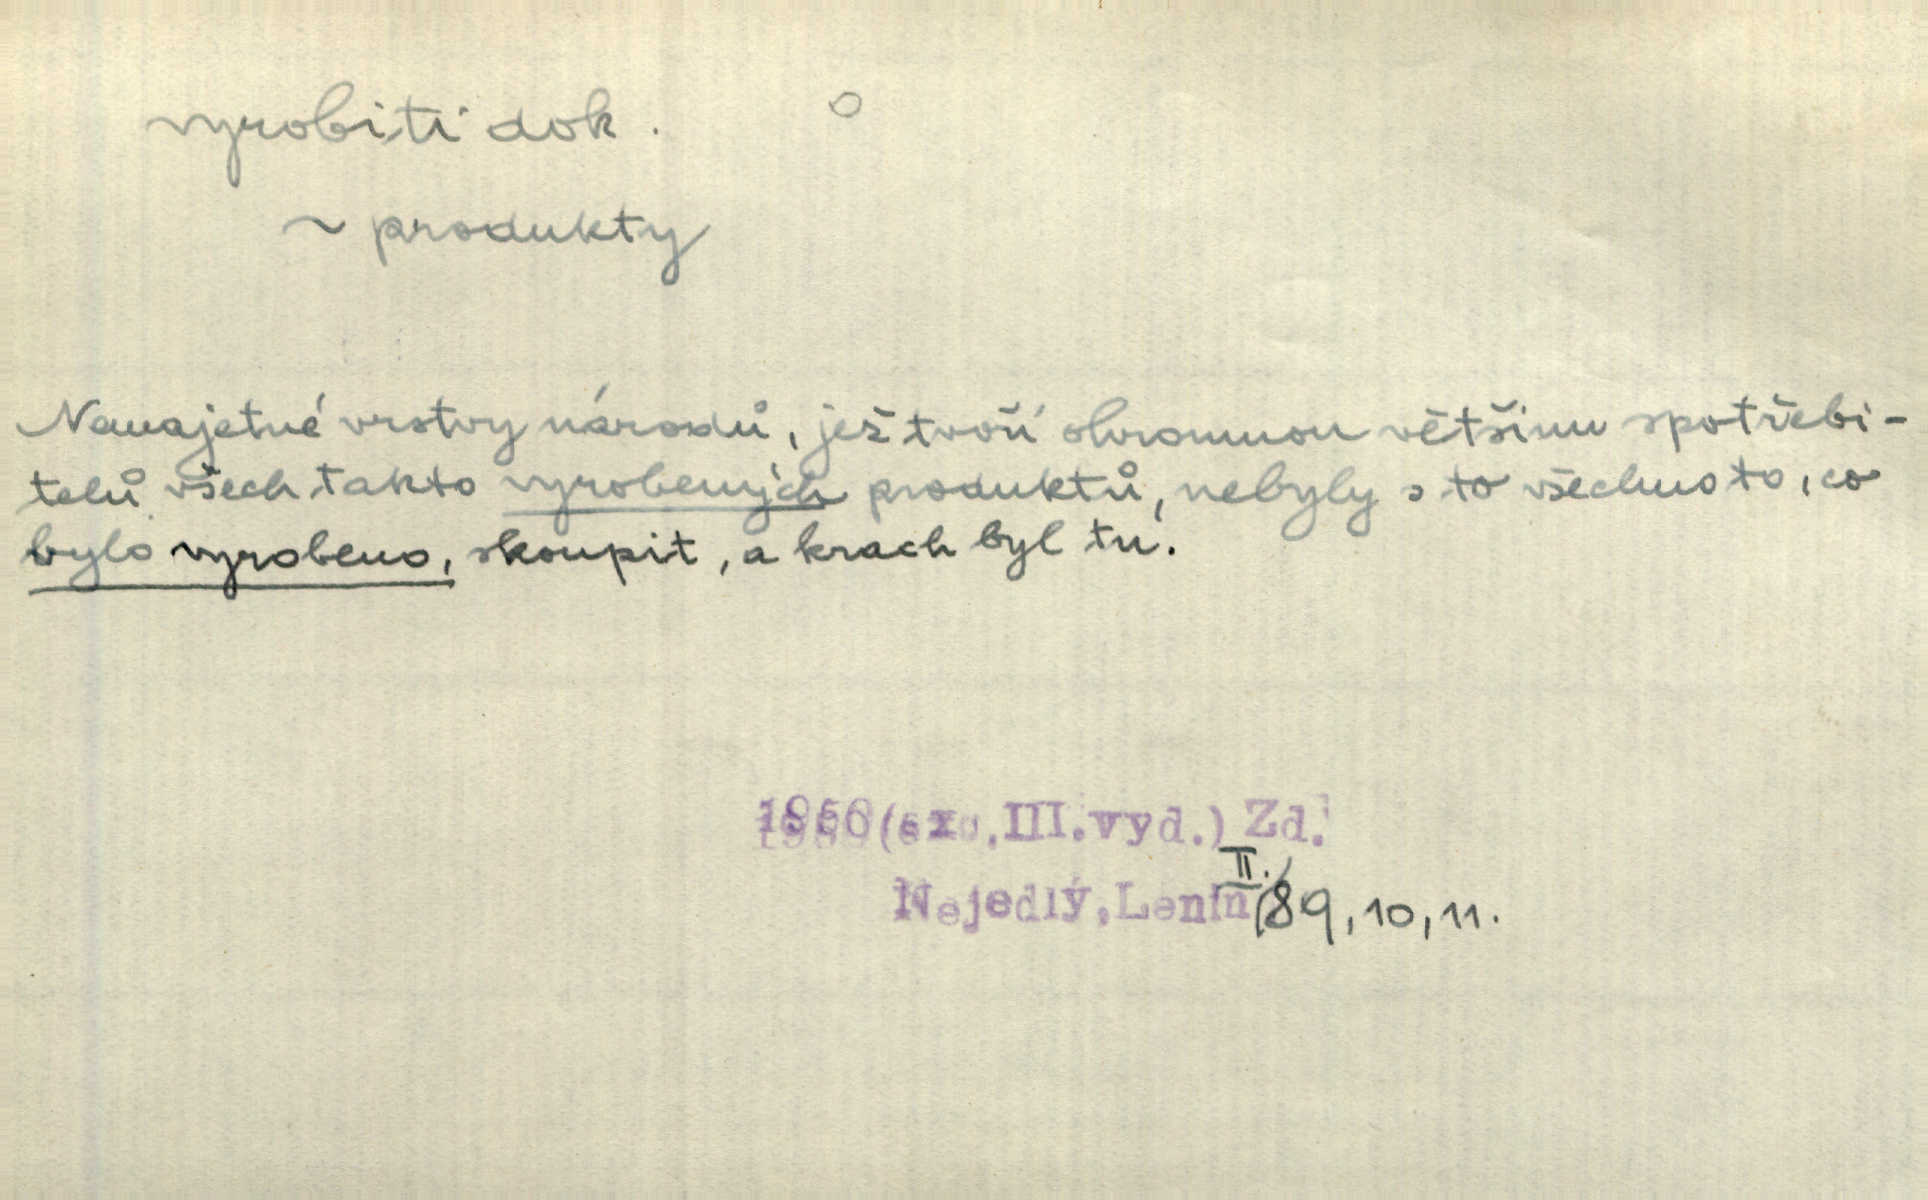 vyrobiti dok. o
~ produkty
Nemajetné vrstvy národů, jež tvoří ohromnou většinu spotřebi-
telů všech takto vyrobených produktů, nebyly s to všechno to, co
bylo vyrobeno, skoupit, a krach byl tu.
(exc. III. vyd.) Zd.
Nejedlý, Lenin II./89, 10, 11.